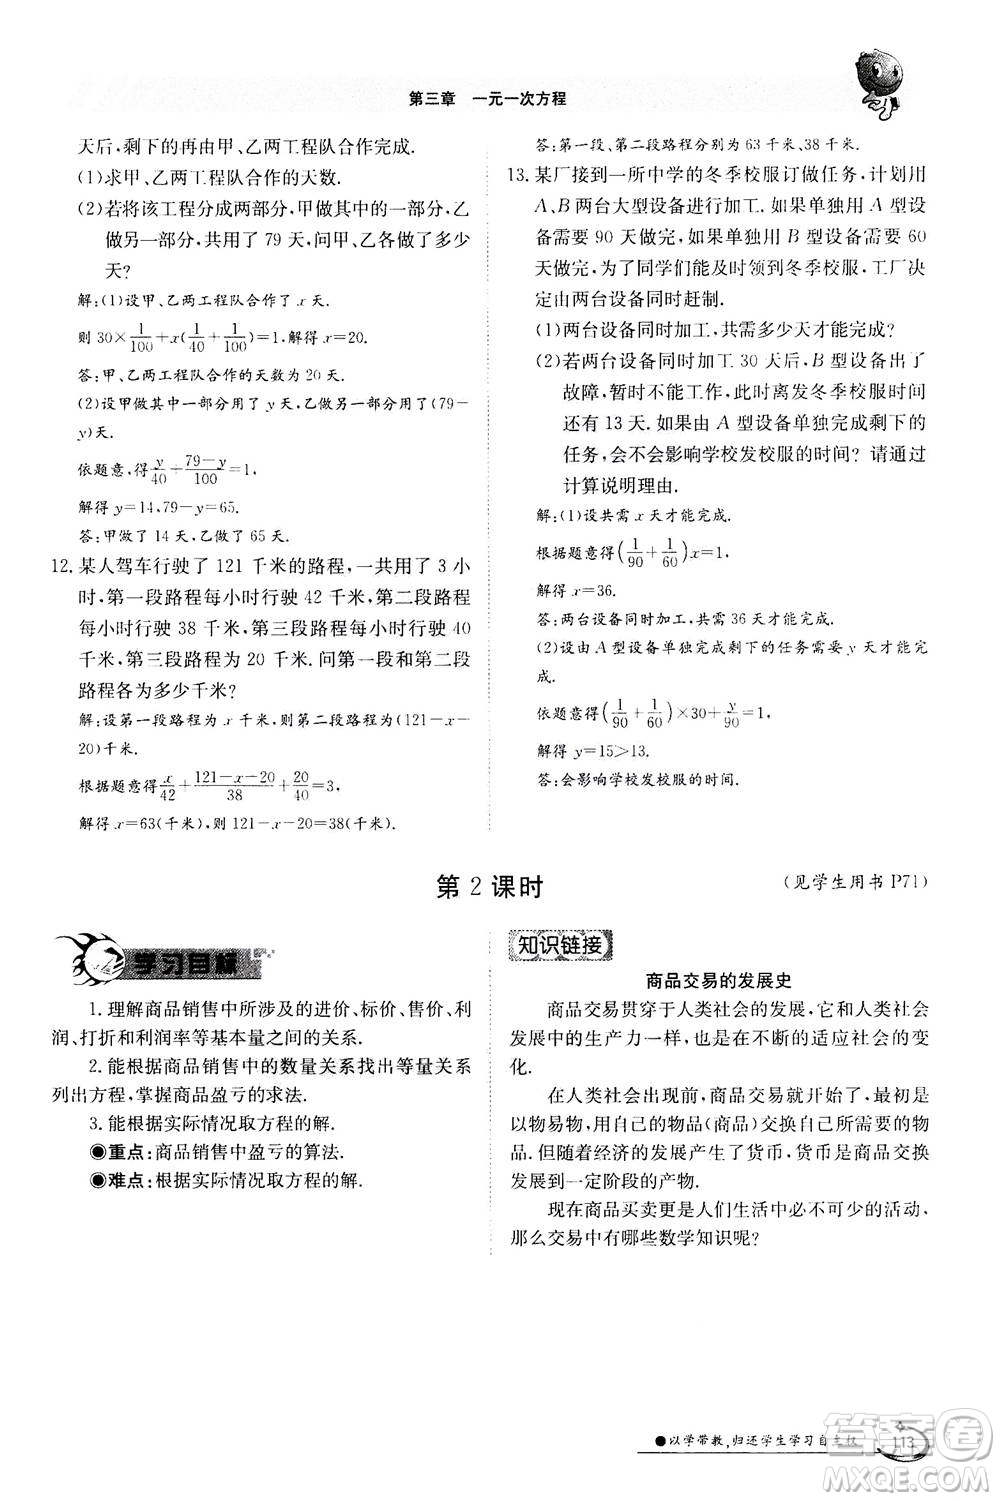 第三章 一元一次方程
天后,剩下的再由甲、乙两工程队合作完成.
(1)求甲、乙两工程队合作的天数.
(2)若将该工程分成两部分,甲做其中的一部分,乙
做另一部分,共用了 79 天,问甲、乙各做了多少
天?
解:(1)设甲、乙两工程队合作了 x 天.
则 30×1/100+x(1/40+1/100)=1,解得 x=20.
答:甲、乙两工程队合作的天数为 20 天.
(2)设甲做其中一部分用了 y 天,乙做另一部分用了(79-
y)天.
依题意,得y/40+(79-y)/100=1,
解得 y=14,79-y=65.
答:甲做了 14 天,乙做了 65 天.
12. 某人驾车行驶了 121 千米的路程,一共用了 3 小
时,第一段路程每小时行驶 42 千米,第二段路程
每小时行驶 38 千米,第三段路程每小时行驶 40
千米,第三段路程为 20 千米.问第一段和第二段
路程各为多少千米?
解:设第一段路程为 x 千米,则第二段路程为(121-x-
20)千米.
根据题意得x/42+(121-x-20)/38+20/40=3,
解得 x=63(千米),则 121-x-20=38(千米).
答:第一段、第二段路程分别为 63 千米、38 千米.
13. 某厂接到一所中学的冬季校服订做任务,计划用
A、B 两台大型设备进行加工.如果单独用 A 型设
备需要 90 天做完,如果单独用 B 型设备需要 60
天做完,为了同学们能及时领到冬季校服,工厂决
定由两台设备同时赶制.
(1)两台设备同时加工,共需多少天才能完成?
(2)若两台设备同时加工 30 天后,B 型设备出了
故障,暂时不能工作,此时离发冬季校服时间
还有 13 天.如果由 A 型设备单独完成剩下的
任务,会不会影响学校发校服的时间?请通过
计算说明理由.
解:(1)设共需 x 天才能完成.
根据题意得(1/90+1/60)x=1,
解得 x=36.
答:两台设备同时加工,共需 36 天才能完成.
(2)设由 A 型设备单独完成剩下的任务需要 y 天才能完
成.
依题意得(1/90+1/60)×30+y/90=1,
解得 y=15>13.
答:会影响学校发校服的时间.
第 2 课时
(见学生用书 P71)
学习目标
1. 理解商品销售中所涉及的进价、标价、售价、利
润、打折和利润率等基本量之间的关系.
2. 能根据商品销售中的数量关系找出等量关系
列出方程,掌握商品盈亏的求法.
3. 能根据实际情况取方程的解.
◉重点:商品销售中盈亏的算法.
◉难点:根据实际情况取方程的解.
知识链接
商品交易的发展史
商品交易贯穿于人类社会的发展,它和人类社会
发展中的生产力一样,也是在不断的适应社会的变
化.
在人类社会出现前,商品交易就开始了,最初是
以物易物,用自己的物品(商品)交换自己所需的物
品.但随着经济的发展产生了货币,货币是商品交换
发展到一定阶段的产物.
现在商品买卖更是人们生活中必不可少的活动,
那么交易中有哪些数学知识呢?
●以学带教,归还学生学习自主权
113
答案圈
MXQE.COM